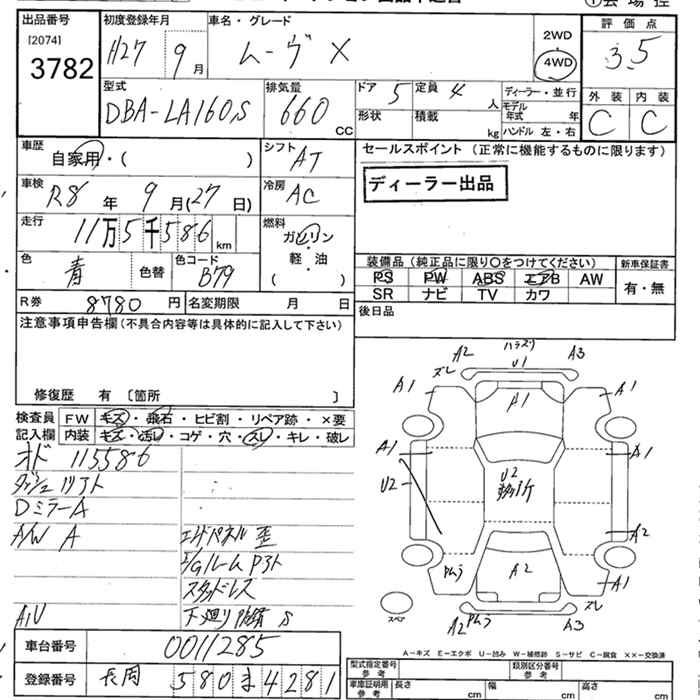 出品番号
[2074]
3782
初度登録年月
H27 9 月
車名・グレード
ムーヴ X
2WD
・
4WD
評 価 点
3.5
外 装 内 装
C C
型式
DBA-LA160S
排気量
660 CC
ドア 5
定員 4 人
形状
積載 kg
ディーラー・並行
モデル年式 年
ハンドル 左・右
車歴
自家用・( )
シフト
AT
車検
R8 年 9 月(27 日)
冷房
AC
走行
11万5千586 km
燃料
ガソリン
・
軽・油
( )
色
青
色替
色コード
B79
R券 8780 円
名変期限 月 日
セールスポイント (正常に機能するものに限ります)
ディーラー出品
装備品 (純正品に限り○をつけてください)
新車保証書
PS PW ABS エアB AW
有・無
SR ナビ TV カワ
後日品
注意事項申告欄(不具合内容等は具体的に記入して下さい)
修復歴 有 〔箇所 〕
検査員
記入欄
FW キズ・飛石・ヒビ割・リペア跡・×要
内装 キズ・汚レ・コゲ・穴・スレ・キレ・破レ
オド 115586
DミラーA
A/W A
エンドパネル 歪
スタッドレス
下廻り 防錆 S
車台番号 0011285
登録番号 長岡 580 ま 4281
A2 ズレ U1 A3
A1 A1 A1
A1 A1
U2 U2
A2
A2 A1
ズレ
スペア
A2 A3
A-キズ E-エクボ U-凹み W-補修跡 S-サビ C-腐食 ××-交換済
型式指定番号
参 考
類別区分番号
参 考
車庫証明用
参 考
長さ cm
幅 cm
高さ cm